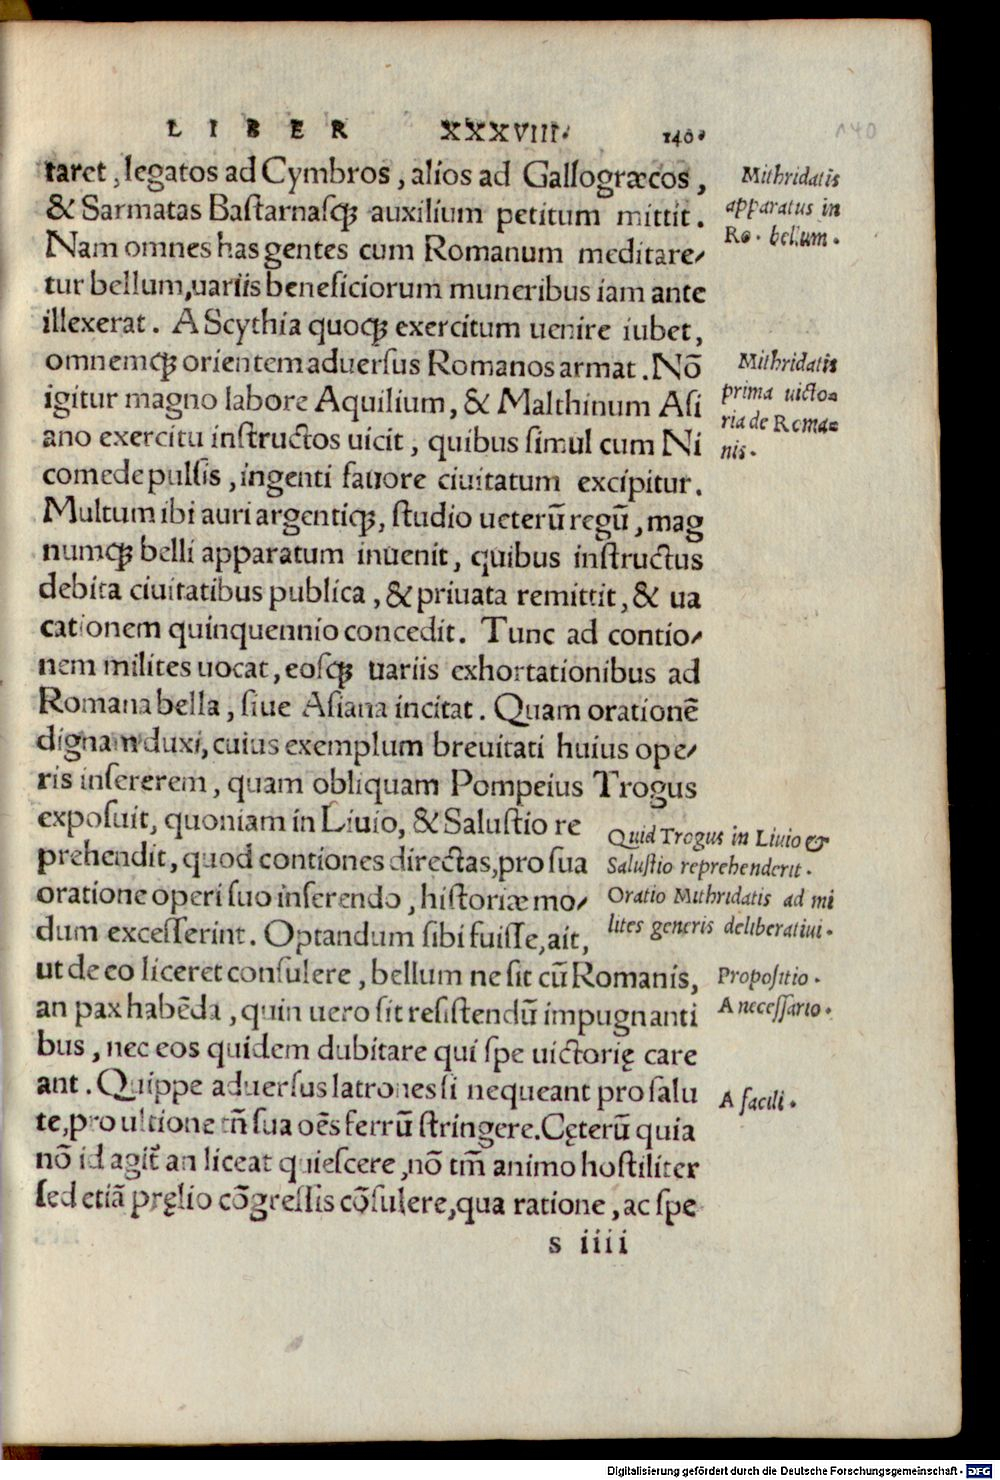 LIBER XXXVIII. 140.
140
taret, legatos ad Cymbros, alios ad Gallogræcos,
& Sarmatas Bastarnasq; auxilium petitum mittit.
Nam omnes has gentes cum Romanum meditare/
tur bellum, uariis beneficiorum muneribus iam ante
illexerat. A Scythia quoq; exercitum uenire iubet,
omnemq; orientem aduersus Romanos armat. Nō
igitur magno labore Aquilium, & Malthinum Asi
ano exercitu instructos uicit, quibus simul cum Ni
comede pulsis, ingenti fauore ciuitatum excipitur.
Multum ibi auri argentiq;, studio ueterū regū, mag
numq; belli apparatum inuenit, quibus instructus
debita ciuitatibus publica, & priuata remittit, & ua
cationem quinquennio concedit. Tunc ad contio/
nem milites uocat, eosq; uariis exhortationibus ad
Romana bella, siue Asiana incitat. Quam orationē
dignam duxi, cuius exemplum breuitati huius ope/
ris insererem, quam obliquam Pompeius Trogus
exposuit, quoniam in Liuio, & Salustio re
prehendit, quod contiones directas, pro sua
oratione operi suo inserendo, historiæ mo/
dum excesserint. Optandum sibi fuisse, ait,
ut de eo liceret consulere, bellum ne sit cū Romanis,
an pax habēda, quin uero sit resistendū impugnanti
bus, nec eos quidem dubitare qui spe uictorię care
ant. Quippe aduersus latrones si nequeant pro salu
te, pro ultione tñ sua oēs ferrū stringere. Cęterū quia
nō id agit̃ an liceat quiescere, nō tm̃ animo hostiliter
sed etiā pręlio cōgressis cōsulere, qua ratione, ac spe
s iiii
Mithridatis
apparatus in
Ro. bellum.
Mithridatis
prima uicto=
ria de Roma=
nis.
Quid Trogus in Liuio &
Salustio reprehenderit.
Oratio Mithridatis ad mi
lites generis deliberatiui.
Propositio.
A necessario.
A facili.
Digitalisierung gefördert durch die Deutsche Forschungsgemeinschaft - DFG